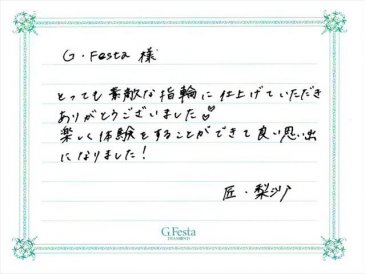 G.Festa 様
とっても素敵な指輪に仕上げていただき
ありがとうございました♡
楽しく体験をすることができて良い思い出
になりました！
匠・梨沙
G.Festa
DIAMOND